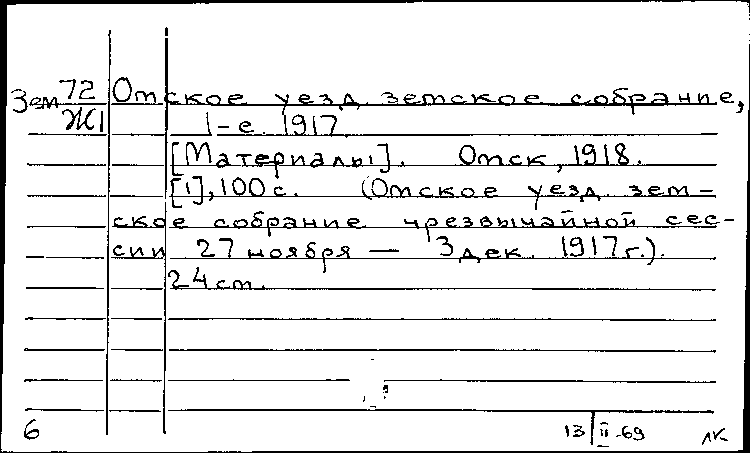 Зем 72 Омское уезд. земское собрание,
Ж1 1-е. 1917
[Материалы]. Омск, 1918.
[1], 100 с. (Омское уезд. зем-
ское собрание чрезвычайной сес-
сии 27 ноября — 3 дек. 1917 г.).
24 см.
6 13/II-69 ЛК